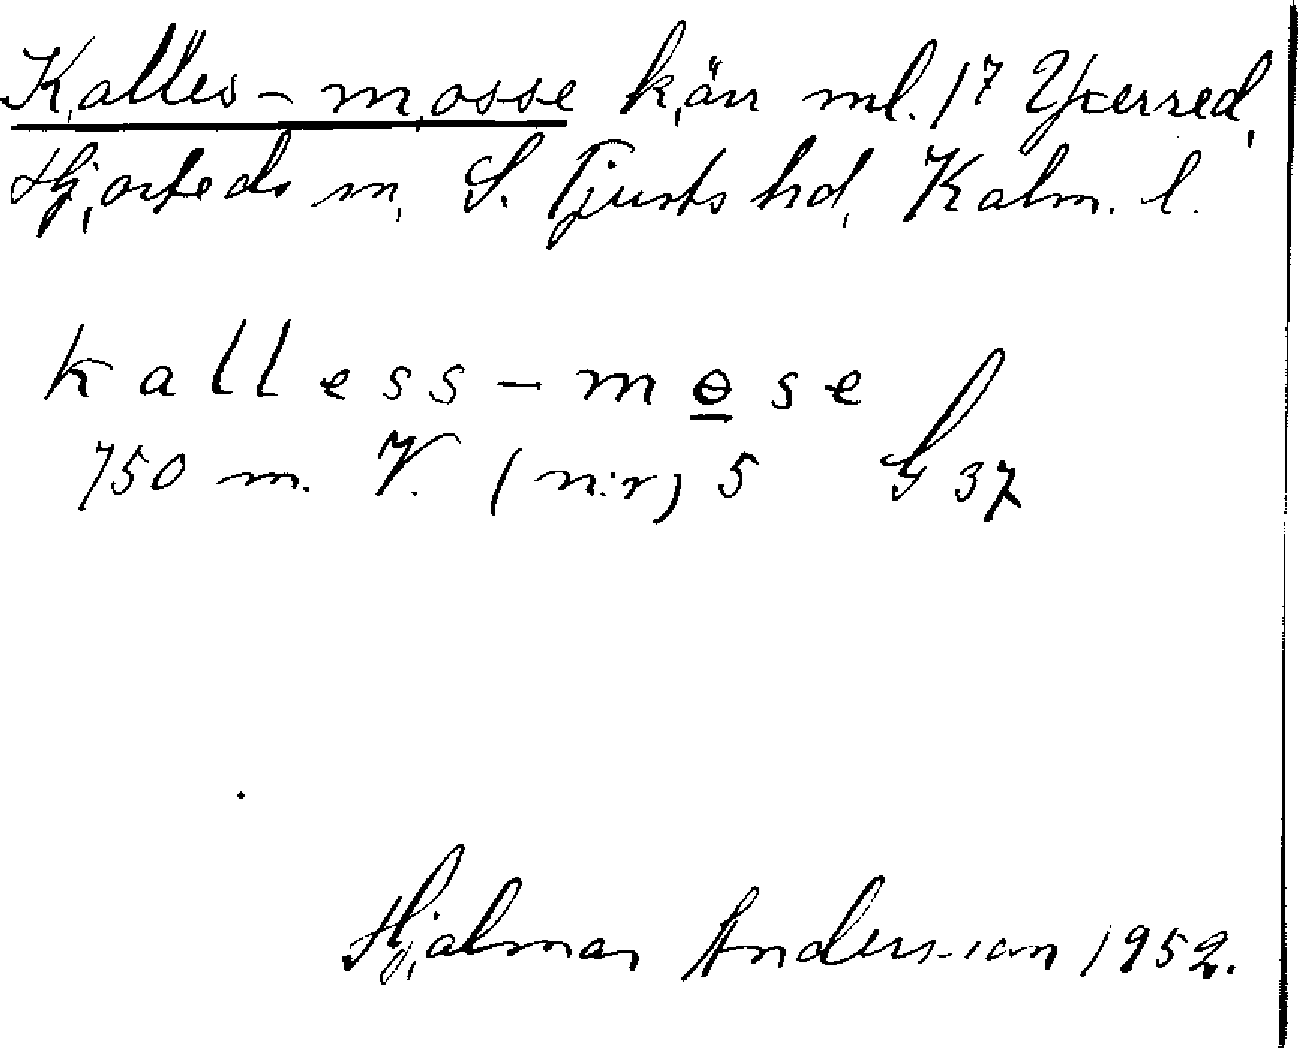 Kalles-mosse kärr ml. 17 Yxerred,
Hjorteds sn, S. Tjusts hd, Kalm. l.
kalless-mɵse
750 m. V. (n:r) 5 G 37
Hjalmar Andersson 1952.